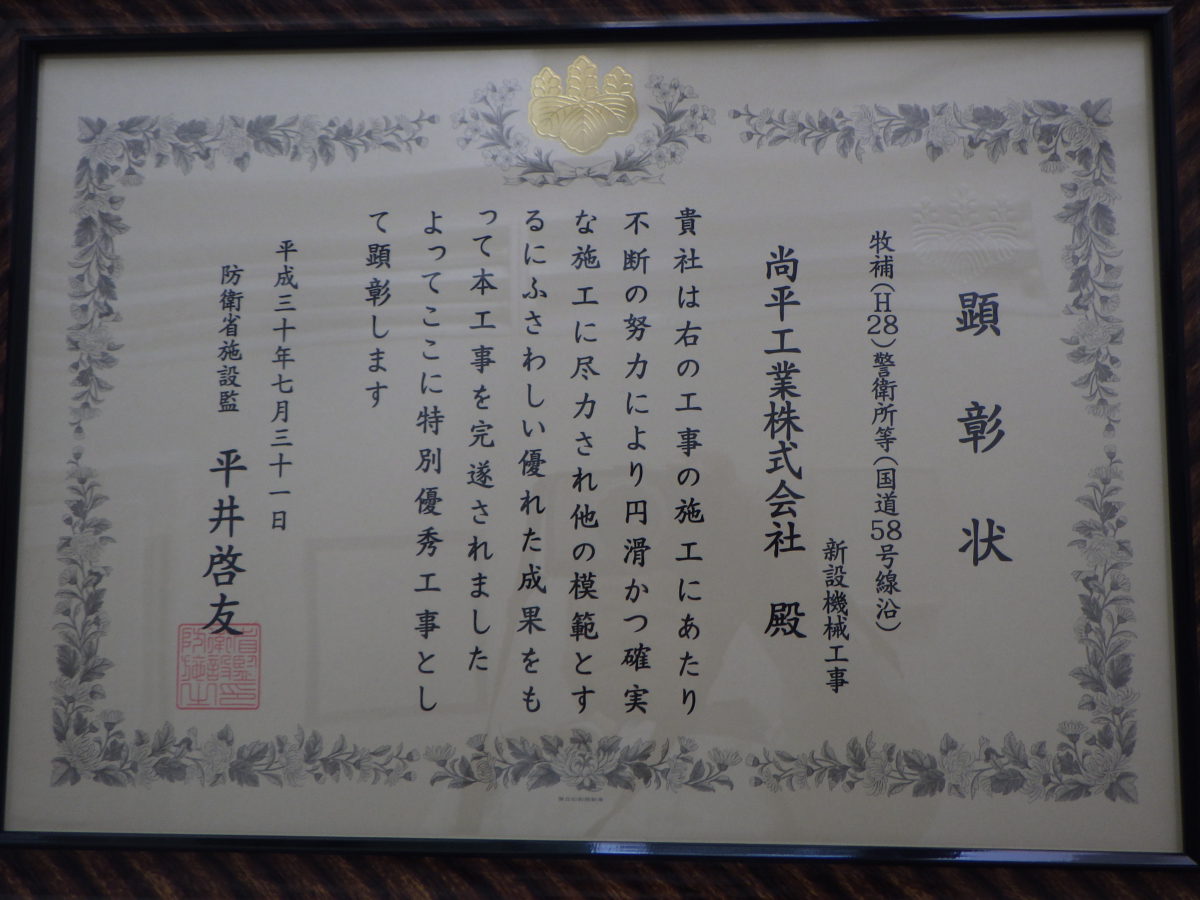 顕彰状
牧補(H28)警衛所等(国道58号線沿)
新設機械工事
尚平工業株式会社 殿
貴社は右の工事の施工にあたり
不断の努力により円滑かつ確実
な施工に尽力され他の模範とす
るにふさわしい優れた成果をも
って本工事を完遂されました
よってここに特別優秀工事とし
て顕彰します
平成三十年七月三十一日
防衛省施設監 平井啓友